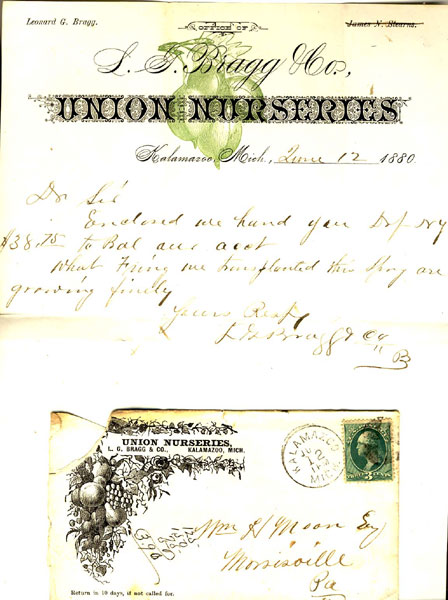 Leonard G. Bragg.
OFFICE OF
James N. Stearns.
L. G. Bragg & Co.,
UNION NURSERIES
Kalamazoo, Mich., June 12 1880
Dr Sir
Enclosed we hand you Df NY
$38.75 to Bal our acct
What we transplanted this Spg are
growing finely
Yours Respy
L G Bragg & Co
B
UNION NURSERIES,
L. G. BRAGG & CO., KALAMAZOO, MICH.
KALAMAZOO
MICH
3
Wm H Moon Esq
Morrisville
Pa
Return in 10 days, if not called for.